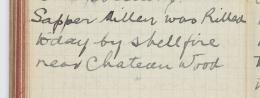 Sapper Miller was Killed
today by shellfire
near Chateau Wood